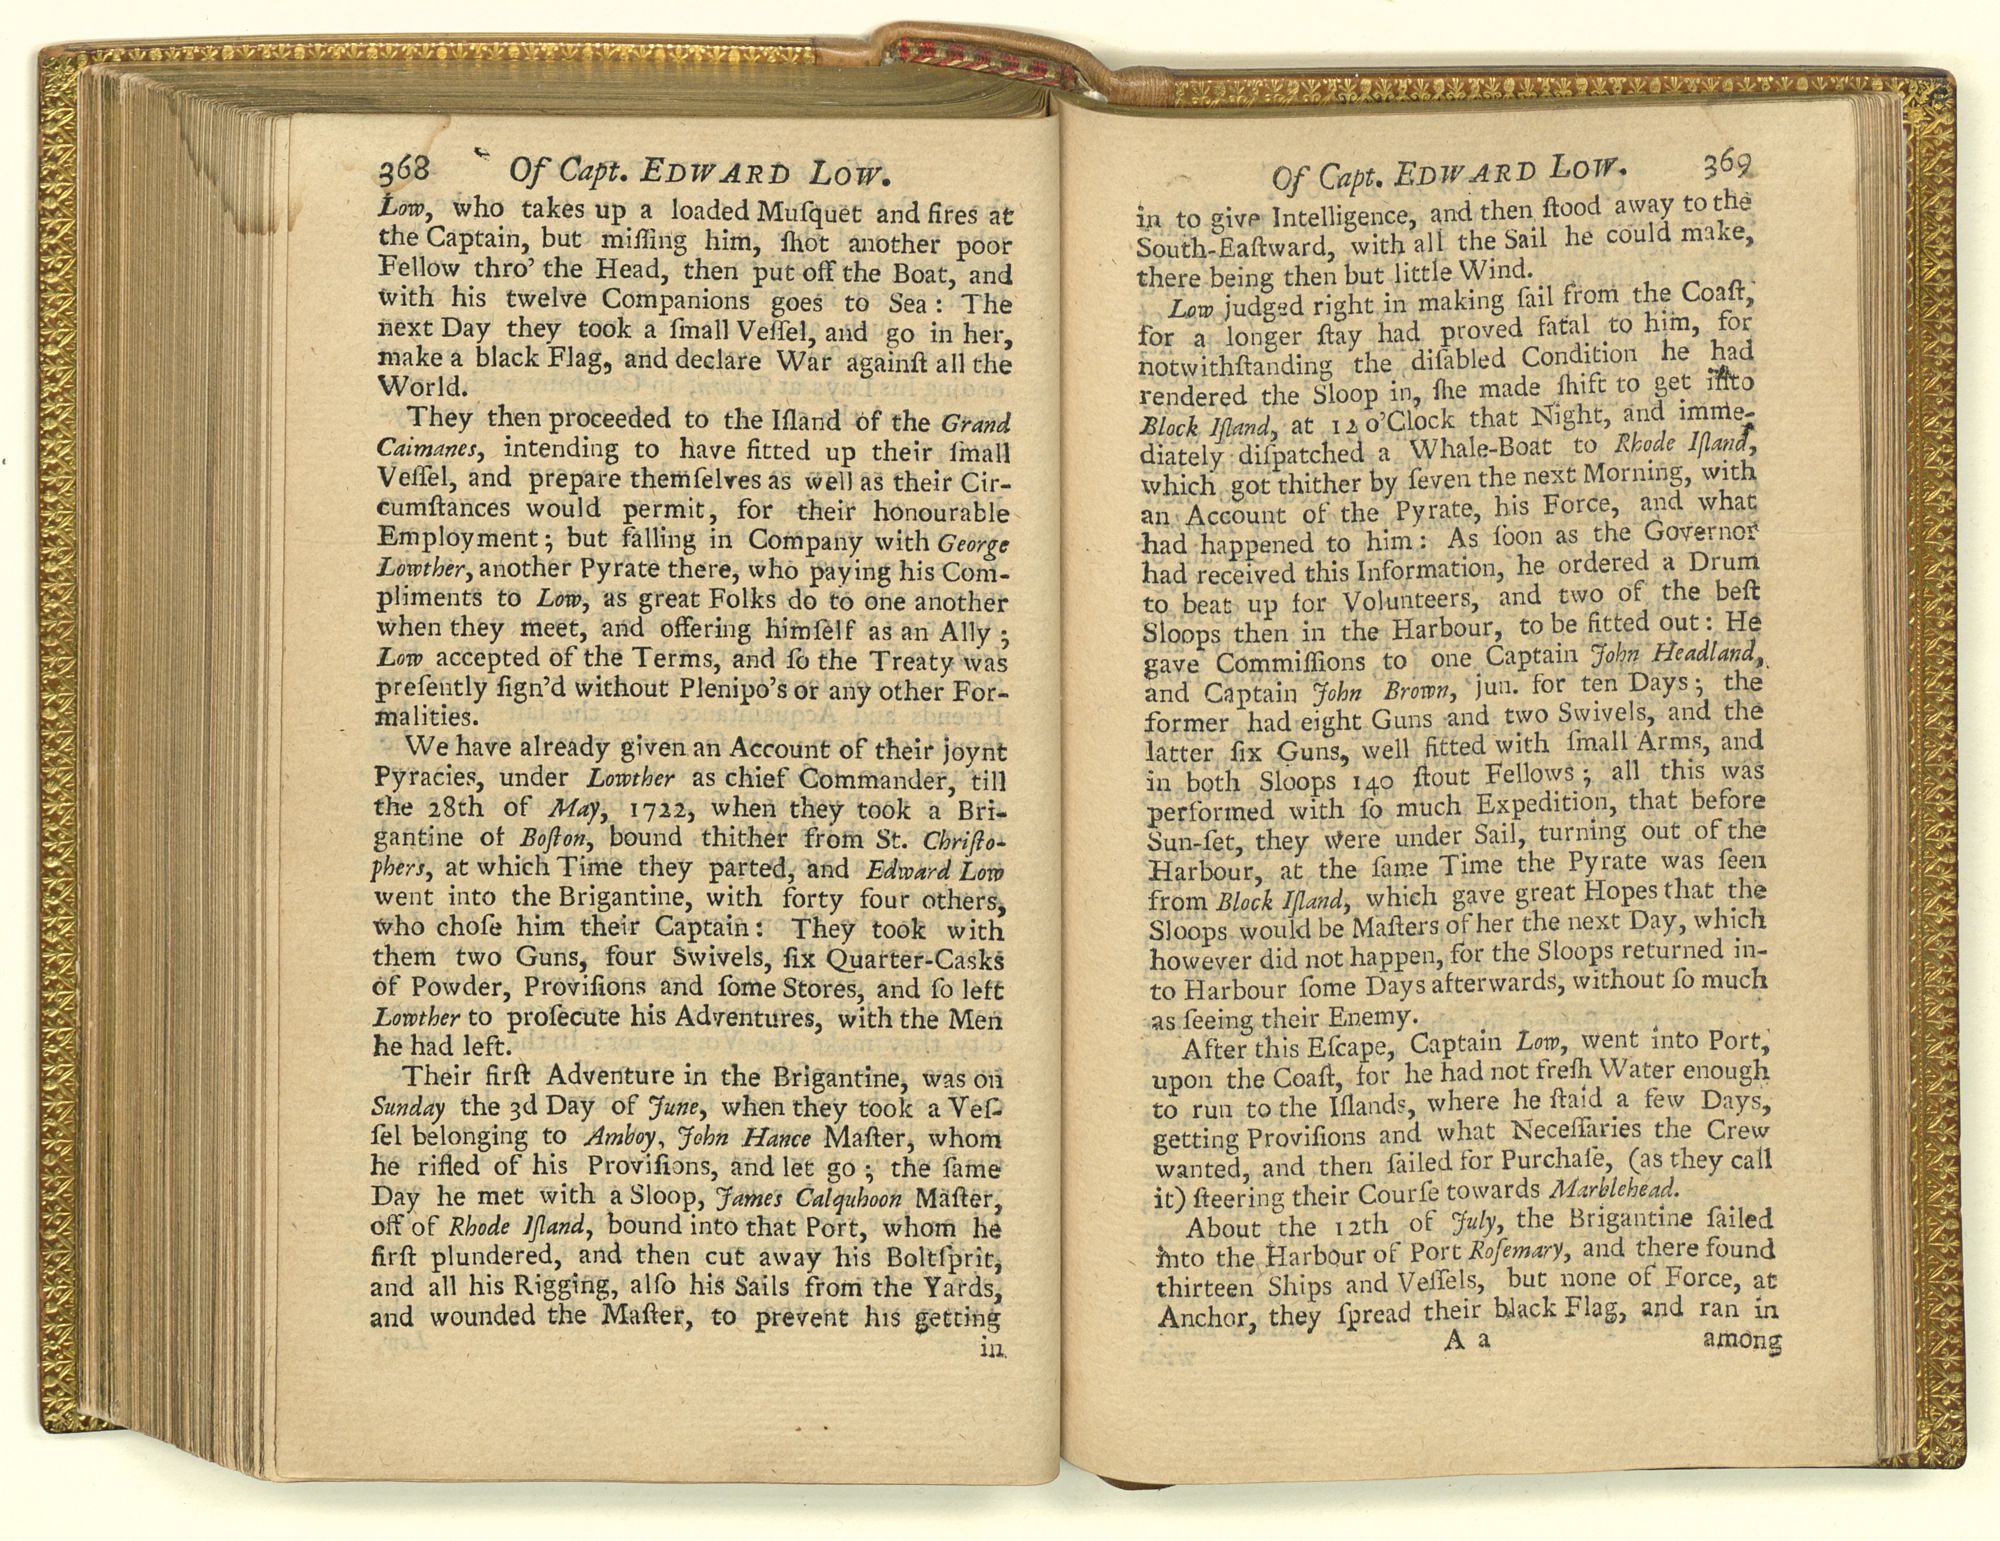 368 Of Capt. EDWARD LOW.
Low, who takes up a loaded Muſquet and fires at
the Captain, but miſſing him, ſhot another poor
Fellow thro' the Head, then put off the Boat, and
with his twelve Companions goes to Sea: The
next Day they took a ſmall Veſſel, and go in her,
make a black Flag, and declare War againſt all the
World.
They then proceeded to the Iſland of the Grand
Caimanes, intending to have fitted up their ſmall
Veſſel, and prepare themſelves as well as their Cir-
cumſtances would permit, for their honourable
Employment; but falling in Company with George
Lowther, another Pyrate there, who paying his Com-
pliments to Low, as great Folks do to one another
when they meet, and offering himſelf as an Ally;
Low accepted of the Terms, and ſo the Treaty was
preſently ſign'd without Plenipo's or any other For-
malities.
We have already given an Account of their joynt
Pyracies, under Lowther as chief Commander, till
the 28th of May, 1722, when they took a Bri-
gantine of Boſton, bound thither from St. Chriſto-
phers, at which Time they parted, and Edward Low
went into the Brigantine, with forty four others,
who choſe him their Captain: They took with
them two Guns, four Swivels, ſix Quarter-Casks
of Powder, Proviſions and ſome Stores, and ſo left
Lowther to proſecute his Adventures, with the Men
he had left.
Their firſt Adventure in the Brigantine, was on
Sunday the 3d Day of June, when they took a Veſ-
ſel belonging to Amboy, John Hance Maſter, whom
he rifled of his Proviſions, and let go; the ſame
Day he met with a Sloop, James Calquhoon Maſter,
off of Rhode Iſland, bound into that Port, whom he
firſt plundered, and then cut away his Boltſprit,
and all his Rigging, alſo his Sails from the Yards,
and wounded the Maſter, to prevent his getting
in
Of Capt. EDWARD LOW. 369
in to give Intelligence, and then ſtood away to the
South-Eaſtward, with all the Sail he could make,
there being then but little Wind.
Low judged right in making ſail from the Coaſt,
for a longer ſtay had proved fatal to him, for
notwithſtanding the diſabled Condition he had
rendered the Sloop in, ſhe made ſhift to get into
Block Iſland, at 12 o'Clock that Night, and imme-
diately diſpatched a Whale-Boat to Rhode Iſland,
which got thither by ſeven the next Morning, with
an Account of the Pyrate, his Force, and what
had happened to him: As ſoon as the Governor
had received this Information, he ordered a Drum
to beat up for Volunteers, and two of the beſt
Sloops then in the Harbour, to be fitted out: He
gave Commiſſions to one Captain John Headland,
and Captain John Brown, jun. for ten Days; the
former had eight Guns and two Swivels, and the
latter ſix Guns, well fitted with ſmall Arms, and
in both Sloops 140 ſtout Fellows; all this was
performed with ſo much Expedition, that before
Sun-ſet, they were under Sail, turning out of the
Harbour, at the ſame Time the Pyrate was ſeen
from Block Iſland, which gave great Hopes that the
Sloops would be Maſters of her the next Day, which
however did not happen, for the Sloops returned in-
to Harbour ſome Days afterwards, without ſo much
as ſeeing their Enemy.
After this Eſcape, Captain Low, went into Port,
upon the Coaſt, for he had not freſh Water enough
to run to the Iſlands, where he ſtaid a few Days,
getting Proviſions and what Neceſſaries the Crew
wanted, and then ſailed for Purchaſe, (as they call
it) ſteering their Courſe towards Marblehead.
About the 12th of July, the Brigantine ſailed
into the Harbour of Port Roſemary, and there found
thirteen Ships and Veſſels, but none of Force, at
Anchor, they ſpread their black Flag, and ran in
A a among